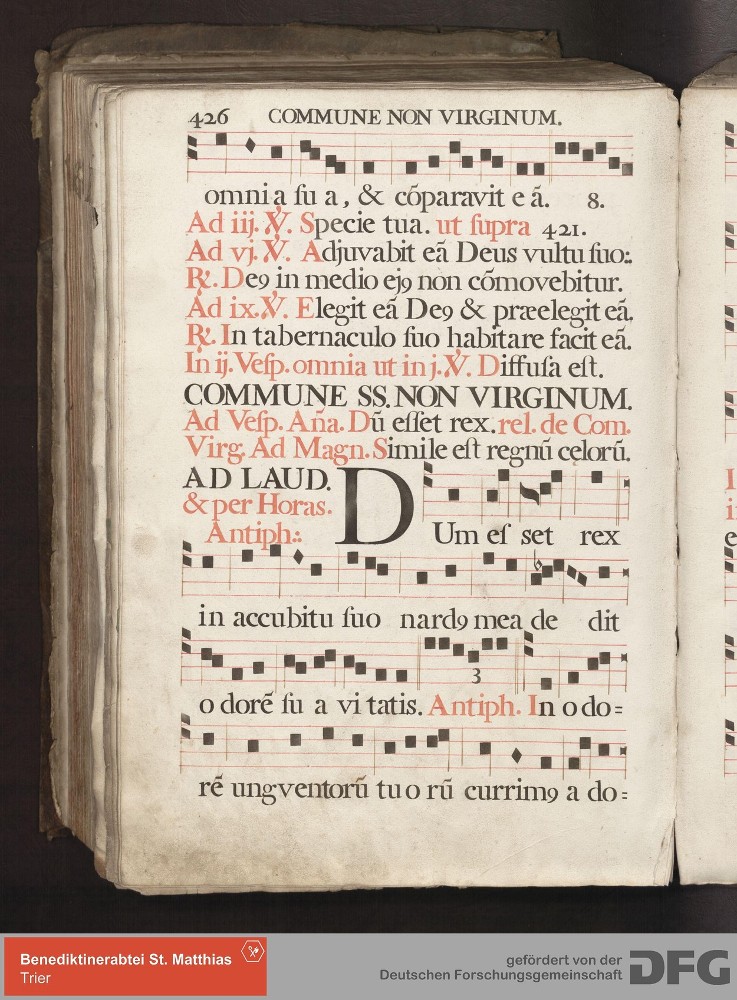 426 COMMUNE NON VIRGINUM.
omnia ſu a, & cõparavit e ã. 8.
Ad iij. ℣. Specie tua. ut ſupra 421.
Ad vj. ℣. Adjuvabit eã Deus vultu ſuo:.
℟. Deꝯ in medio ejꝯ non cõmovebitur.
Ad ix. ℣. Elegit eã Deꝯ & præelegit eã.
℟. In tabernaculo ſuo habitare facit eã.
In ij. Veſp. omnia ut in j. ℣. Diffuſa eſt.
COMMUNE SS. NON VIRGINUM.
Ad Veſp. Aña. Dũ eſſet rex. rel. de Com.
Virg. Ad Magn. Simile eſt regnũ celorũ.
AD LAUD.
& per Horas.
Antiph:.
DUm eſ set rex
in accubitu ſuo nardꝯ mea de dit
o dorẽ ſu a vi tatis. Antiph. In o do=
3
rẽ ungventorũ tu o rũ currimꝯ a do=
Benediktinerabtei St. Matthias
Trier
gefördert von der
Deutschen Forschungsgemeinschaft
DFG